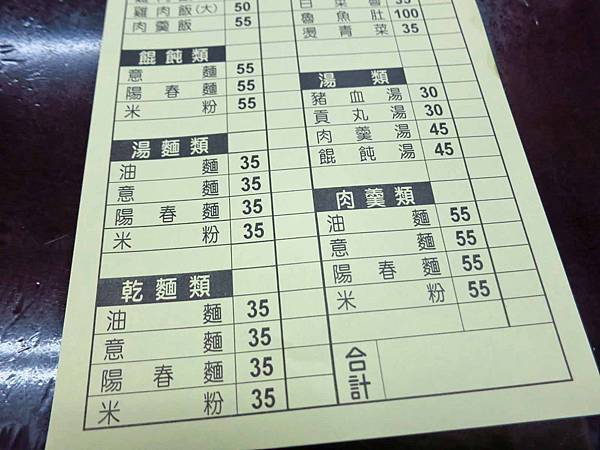 雞肉飯(大) 50
肉羹飯 55
餛飩類
意麵 55
陽春麵 55
米粉 55
湯麵類
油麵 35
意麵 35
陽春麵 35
米粉 35
乾麵類
油麵 35
意麵 35
陽春麵 35
米粉 35
魯魚肚 100
燙青菜 35
湯類
豬血湯 30
貢丸湯 30
肉羹湯 45
餛飩湯 45
肉羹類
油麵 55
意麵 55
陽春麵 55
米粉 55
合計